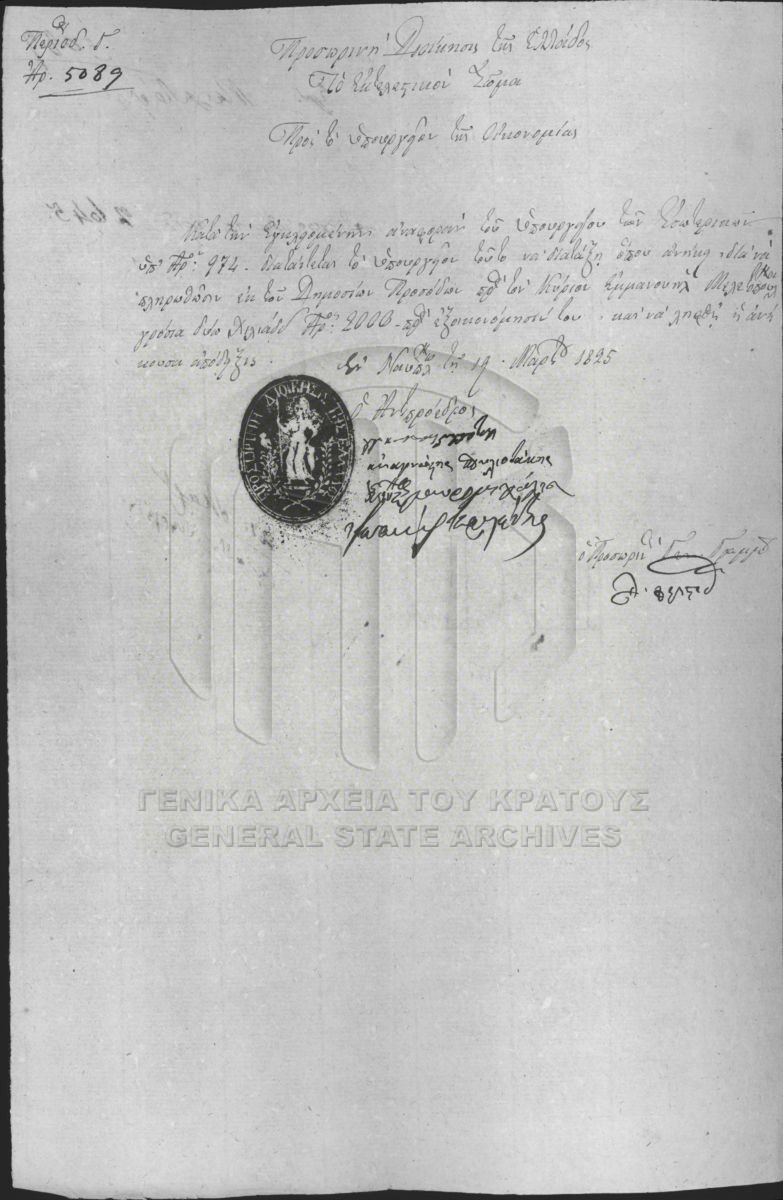 Περίοδ. Γ.
Ἀρ. 5089
Προσωρινὴ Διοίκησις τῆς Ἑλλάδος
Τὸ Ἐκτελεστικὸν Σῶμα
Πρὸς τὸ ὑπουργεῖον τῆς Οἰκονομίας
Κατὰ τὴν ἐγκλειομένην ἀναφορὰν τοῦ ὑπουργείου τῶν Ἐσωτερικῶν
ὑπ' Ἀρ: 974. διατάττεται τὸ ὑπουργεῖον τοῦτο νὰ διατάξῃ ὅπου ἀνήκει διὰ νὰ
πληρωθῶσιν ἐκ τῶν Δημοσίων Προσόδων πρὸς τὸν Κύριον Ἐμμανουὴλ
γρόσια δύω χιλιάδες Ἀρ: 2000 - πρὸς ἐξοικονόμησίν του. καὶ νὰ ληφθῇ ἡ ἀνή
κουσα ἀπόδειξις.
Ἐν Ναυπλ. τῇ 19 Μαρτ. 1825
ὁ Ἀντιπρόεδρος
ΠΡΟΣΩΡΙΝΗ ΔΙΟΙΚΗΣΙΣ ΤΗΣ ΕΛΛΑΔΟΣ
ὁ Προσωρ. Γεν. Γραμμ.
ΓΕΝΙΚΑ ΑΡΧΕΙΑ ΤΟΥ ΚΡΑΤΟΥΣ
GENERAL STATE ARCHIVES